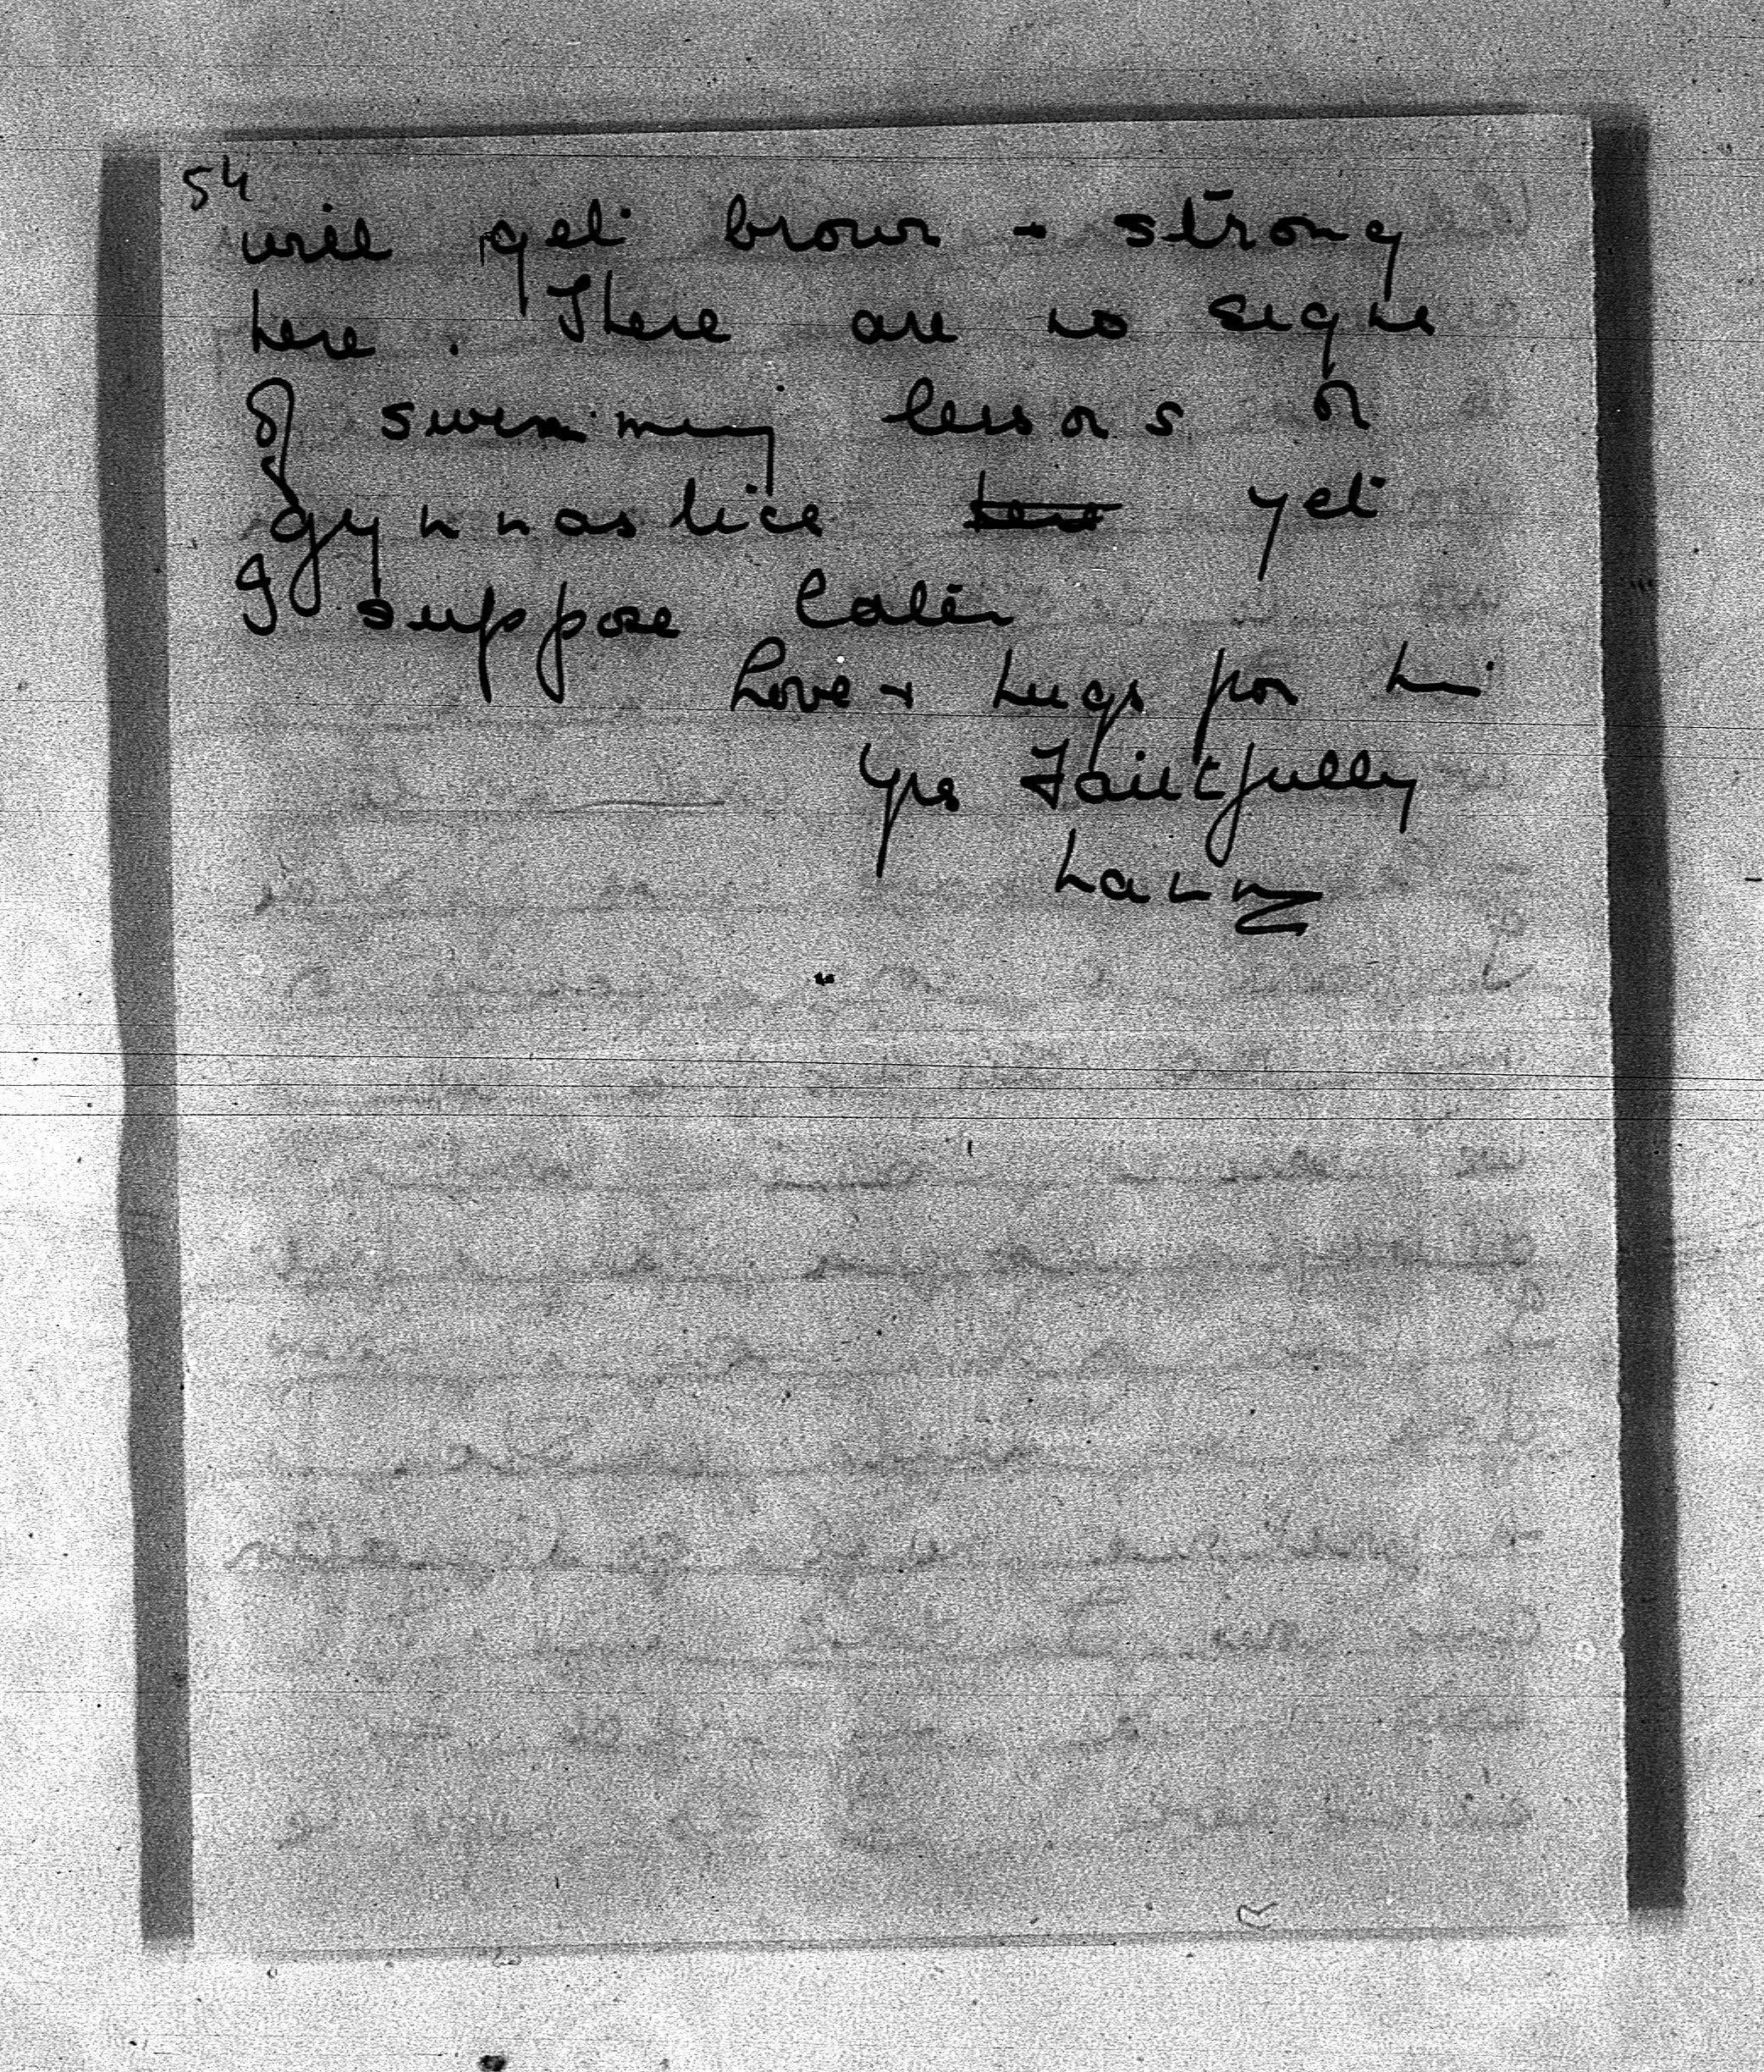 54
will get brown + strong
here. There are no signs
of swimming lessons or
gymnastics yet
I suppose later
Love + hugs for him
Yrs Faithfully